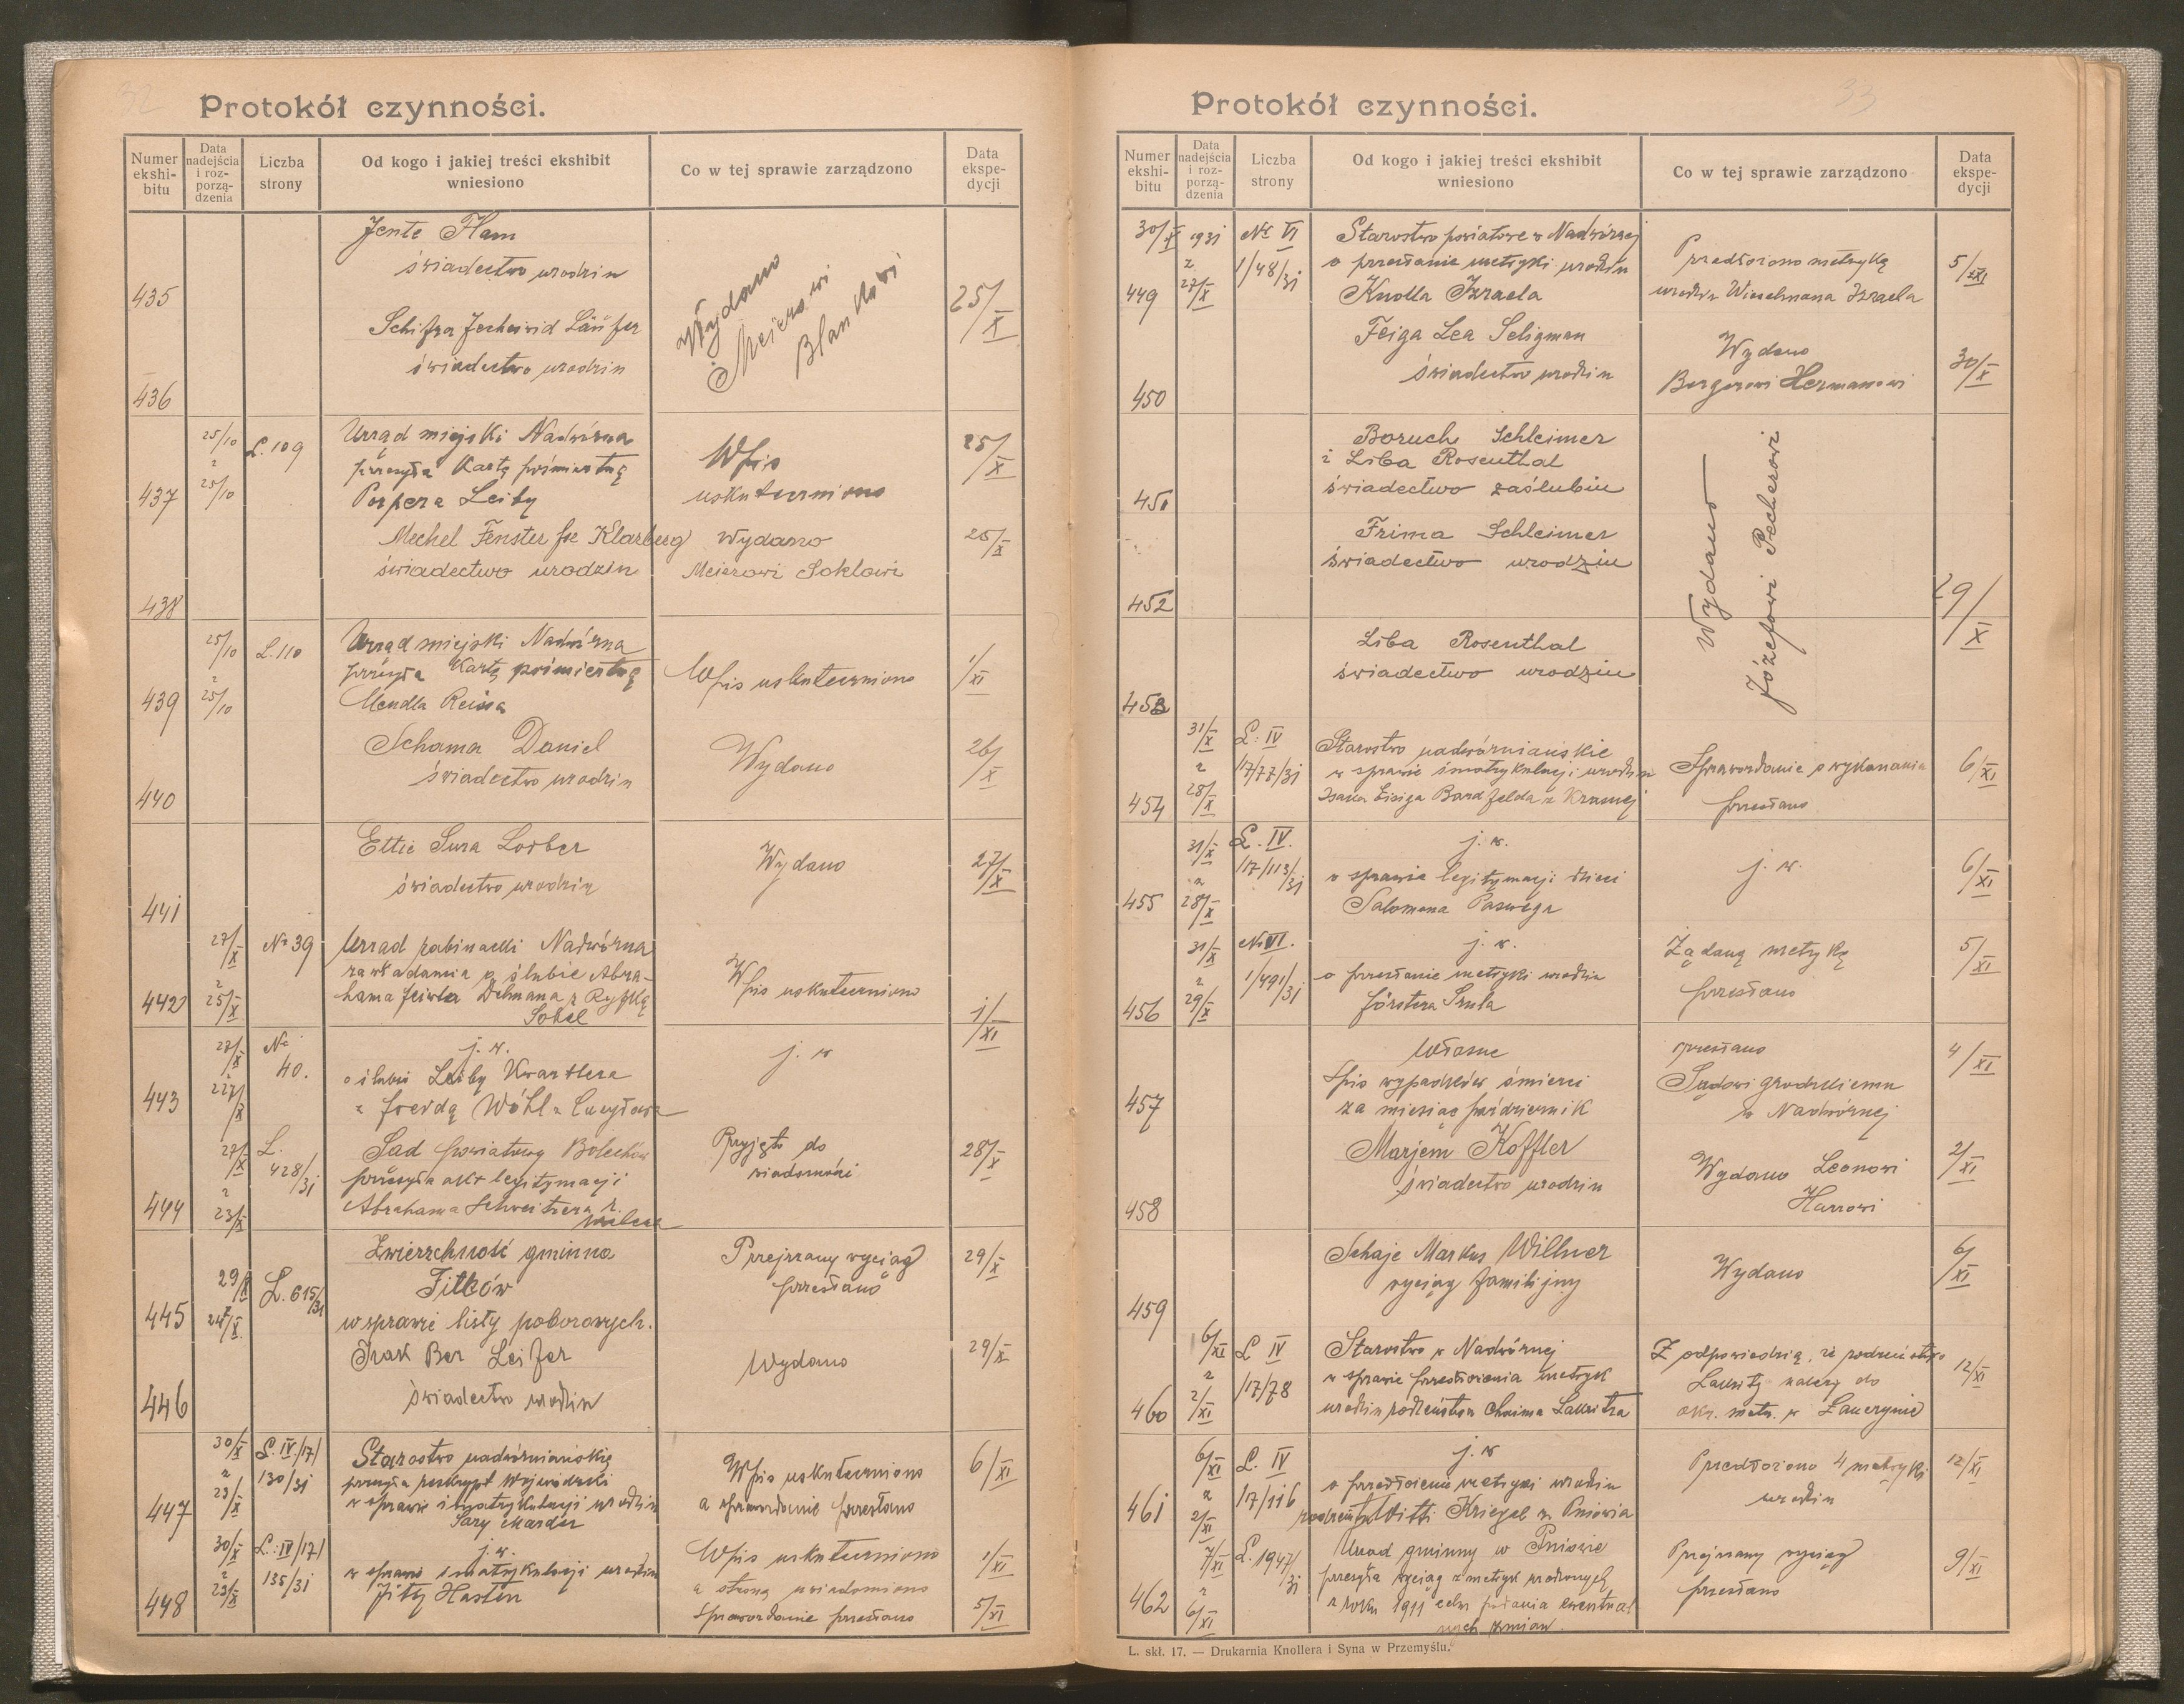 32
Protokół czynności.
Numer ekshi-bitu
Data nadejścia i roz-porzą-dzenia
Liczba strony
Od kogo i jakiej treści ekshibit wniesiono
Co w tej sprawie zarządzono
Data ekspe-dycji
Jente Ham
świadectwo urodzin
435
Wydano
Meierowi
Blankowi
25/X
świadectwo urodzin
436
25/10
z
25/10
L. 109
437
Urząd miejski Nadwórna
przesyła Kartę pośmiertną
Pospera Leiby
Wpis
uskuteczniono
25/X
Mechel Fenster fże Klarberg
świadectwo urodzin
438
Wydano
Meierowi Soklowi
25/X
25/10
z
25/10
L. 110
439
Urząd miejski Nadwórna
przesyła Kartę pośmiertną
Mendla Reissa
Wpis uskuteczniono
1/XI
Schama Daniel
świadectwo urodzin
440
Wydano
26/X
Ettie Sura Lorber
świadectwo urodzin
441
Wydano
27/X
27/X
z
25/X
No 39
442
Urzad rabinacki Nadwórna
zawiadamia o ślubie Abra-
hama Dehnana z Ryfką
Sokel
Wpis uskuteczniono
1/XI
28/X
z 27/X
No 40.
443
j. w.
o ślubie Leiby Kwartlera
z Freidą Wöhl z
j. w
27/X
z
23/X
L. 428/31
444
Sąd powiatowy Bolechów
przesyła akt legitymacji
Abrahama Schweitzera
Przyjęto do
wiadomości
28/X
29/X
24/X
L. 615/31
445
Zwierzchność gminna
Fitków
w sprawie listy poborowych.
Przejrzany wyciąg
przesłano
29/X
Izak Ber Leifer
świadectwo urodzin
446
Wydano
29/X
30/X
z
23/X
L. IV/17/
130/31
447
Starostwo nadwórniańskie
przesyła reskrypt Wojewódzki
w sprawie imatrykulacji urodzin
Sary Marder
Wpis uskuteczniono
a sprawozdanie przesłano
6/XI
30/X
z
23/X
L. IV/17/
135/31
448
j. w.
w sprawie imatrykulacji urodzin
Jity Hasten
Wpis uskuteczniono
a stronę uwiadomiono
Sprawozdanie przesłano
1/XI
5/XI
33
Protokół czynności.
Numer ekshi-bitu
Data nadejścia i roz-porzą-dzenia
Liczba strony
Od kogo i jakiej treści ekshibit wniesiono
Co w tej sprawie zarządzono
Data ekspe-dycji
30/X 1931
z
27/X
No VI
1/48/31
449
Starostwo powiatowe w Nadwórnej
o przesłanie metryki urodzin
Knolla Izraela
Przedłożono metrykę
urodzin Wieselmana Izraela
5/XI
Feiga Lea Seligman
świadectwo urodzin
450
Wydano
Bergerowi Hermanowi
30/X
Boruch Schleimer
i Liba Rosenthal
świadectwo zaślubin
451
Frima Schleimer
świadectwo urodzin
452
Wydano
Józefowi Pecherowi
29/X
Liba Rosenthal
świadectwo urodzin
453
31/X
z
28/X
L: IV
17/77/31
454
Starostwo nadwórniańskie
w sprawie imatrykulacji urodzin
Isaka Eisiga Bardfelda z Krasnej
Sprawozdanie o wykonaniu
przesłano
6/XI
31/X
z
28/X
L. IV.
17/113/31
455
j. w.
w sprawie legitymacji dzieci
Salomona
j. w.
6/XI
31/X
z
29/X
No VI.
1/491/31
456
j. w.
o przesłanie metryki urodzin
Förstera Srula
Żądaną metrykę
przesłano
5/XI
Własne
Spis wypadków śmierci
za miesiąc październik
457
przesłano
Sądowi grodzkiemu
w Nadwórnej
4/XI
Marjem Koffler
świadectwo urodzin
458
Wydano Leonowi
Harrowi
2/XI
Schaje Markus Willner
wyciąg familijny
459
Wydano
6/XI
6/XI
z
2/XI
L IV
17/78
460
Starostwo w Nadwórnej
w sprawie przedłożenia metryk
urodzin rodzeństwa Chaima Lakritza
Z odpowiedzią, że rodzeństwo
Lakritz należy do
okr. metr. w Łanczynie
12/XI
6/XI
z
2/XI
L. IV
17/116
461
j. w
o przedłożenie metryki urodzin
Kriegel z Pniowia
Przedłożono 4 metryki
urodzin
12/XI
7/XI
z
6/XI
L. 1947/31
462
Urząd gminny w Pniowie
przesyła wyciąg z metryk urodzonych
z roku 1911 celem podania ewentual
nych zmian.
Przejrzany wyciąg
przesłano
9/XI
L. skł. 17. — Drukarnia Knollera i Syna w Przemyślu.